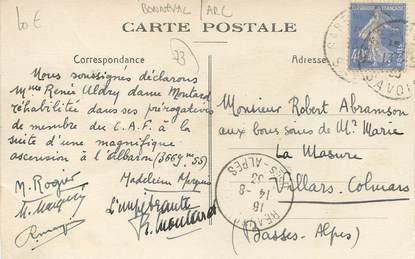 60 €
BONNEVAL / ARC
73
CARTE POSTALE
Correspondance
Adresse
Nous soussignés déclarons
Mme Renée Uldry dame Moutard
réhabilitée dans ses prérogatives
de membre du C.A.F à la
suite d'une magnifique
ascension à l'Albaron (3669m,55)
M. Rogier
Madeleine
L'impétrante
R. Moutard
Monsieur Robert Abramson
aux bons soins de Mr Marie
La Masure
Villars-Colmars
(Basses-Alpes)
40c
SAVOIE
18
14-8
33
SES-ALPES